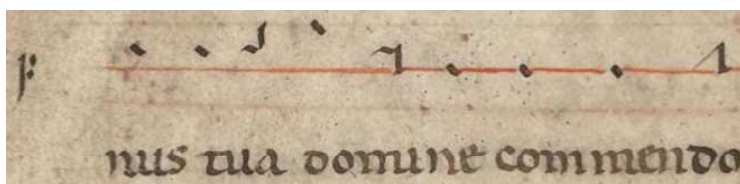 nus tua domine commendo